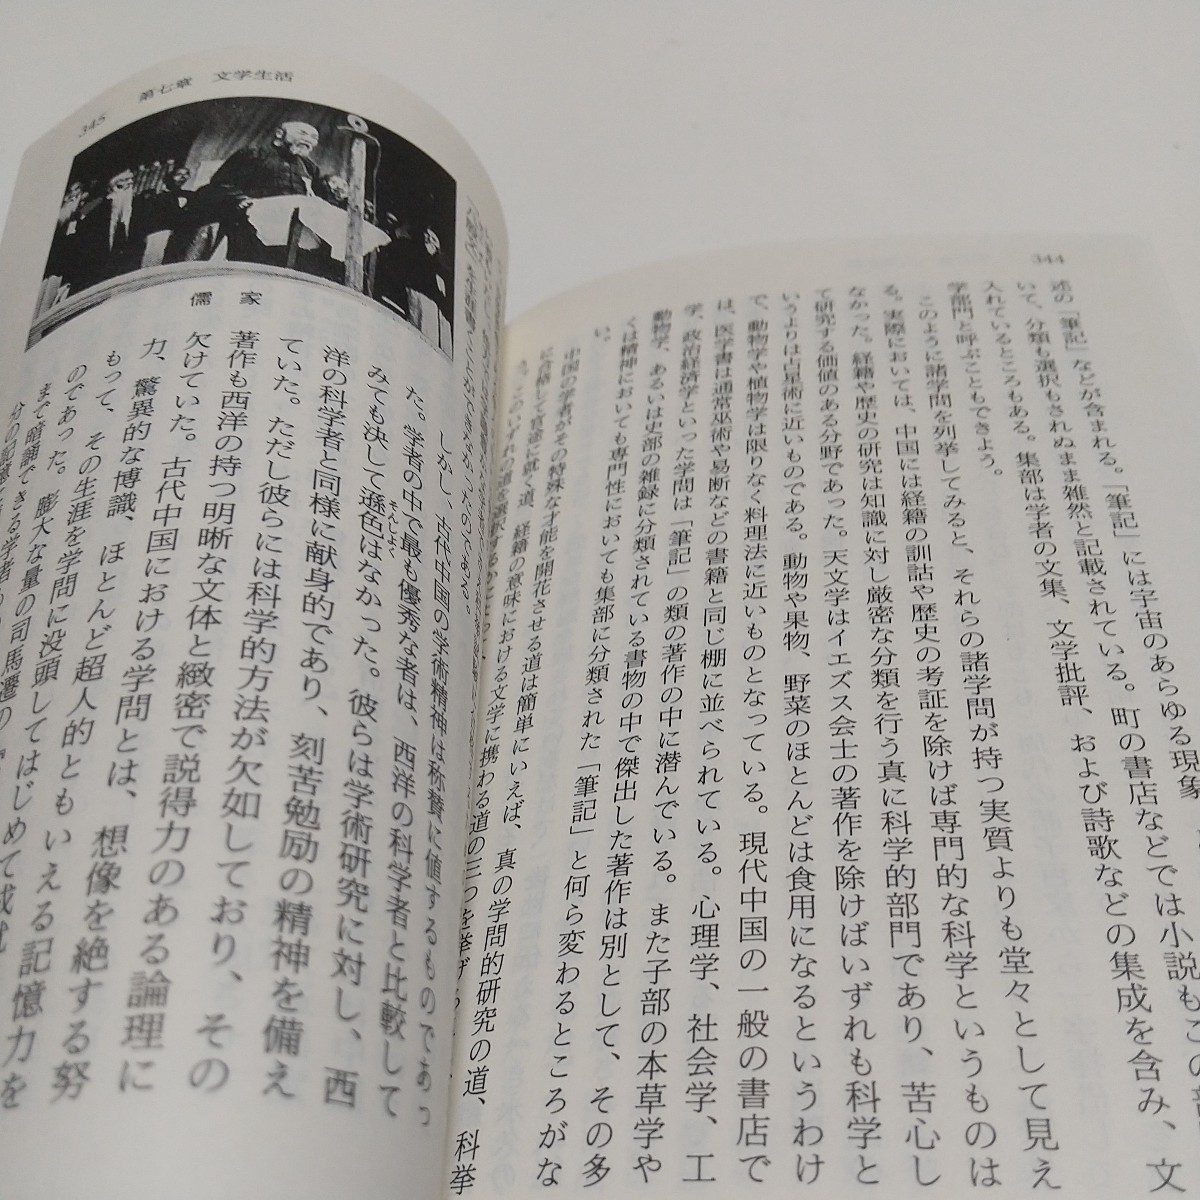 344
述の「筆記」などが含まれる。「筆記」には宇宙のあらゆる現象
いて、分類も選択もされぬまま雑然と記載されている。町の書店などでは小説もこの部
入れているところもある。集部は学者の文集、文学批評、および詩歌などの集成を含み、文
学部門と呼ぶこともできよう。
このように諸学問を列挙してみると、それらの諸学問が持つ実質よりも堂々として見え
る。実際においては、中国には経籍の訓詁や歴史の考証を除けば専門的な科学というものは
なかった。経籍や歴史の研究は知識に対し厳密な分類を行う真に科学的部門であり、苦心し
て研究する価値のある分野であった。天文学はイエズス会士の著作を除けばいずれも科学と
いうよりは占星術に近いものである。動物や果物、野菜のほとんどは食用になるというわけ
で、動物学や植物学は限りなく料理法に近いものとなっている。現代中国の一般の書店で
は、医学書は通常巫術や易断などの書籍と同じ棚に並べられている。心理学、社会学、工
学、政治経済学といった学問は「筆記」の類の著作の中に潜んでいる。また子部の本草学や
動物学、あるいは史部の雑録に分類されている書物の中で傑出した著作は別として、その多
くは精神においても専門性においても集部に分類された「筆記」と何ら変わるところがな
い。
中国の学者がその特殊な才能を開花させる道は簡単にいえば、真の学問的研究の道、科挙
に合格して官途に就く道、経籍の意味における文学に携わる道の三つを挙げ
第七章　文学生活
345
儒家
しかし、古代中国の学術精神は称賛に値するものであっ
た。学者の中で最も優秀な者は、西洋の科学者と比較して
みても決して遜色はなかった。彼らは学術研究に対し、西
そんしよく
洋の科学者と同様に献身的であり、刻苦勉励の精神を備え
ていた。ただし彼らには科学的方法が欠如しており、その
著作も西洋の持つ明晰な文体と緻密で説得力のある論理に
欠けていた。古代中国における学問とは、想像を絶する努
力、驚異的な博識、ほとんど超人的ともいえる記憶力を
もって、その生涯を学問に没頭してはじめて成就
のであった。膨大な量の司馬遷の『
まで暗誦できる学者